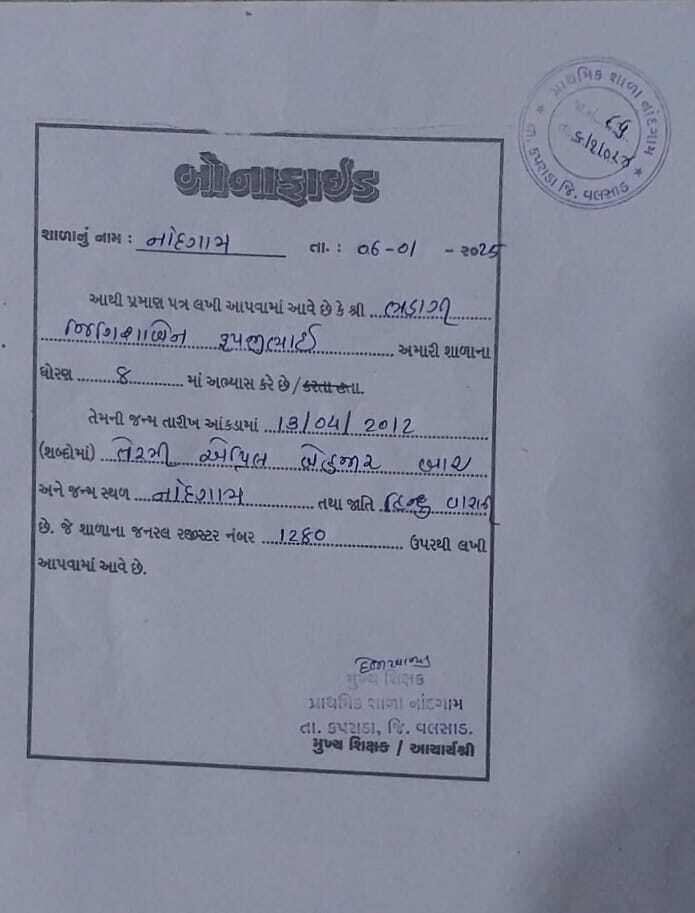 પ્રાથમિક શાળા નાંદગામ
તા. કપરાડા જિ. વલસાડ
બોનાફાઈડ
શાળાનું નામ : નાંદગામ તા. : 06-01 - ૨૦25
આથી પ્રમાણ પત્ર લખી આપવામાં આવે છે કે શ્રી
જિગિશાબેન રૂપજીભાઈ અમારી શાળાના
ધોરણ 8 માં અભ્યાસ કરે છે / કરતા હતા.
તેમની જન્મ તારીખ આંકડામાં 13/04/2012
(શબ્દોમાં) તેરમી એપ્રિલ બેહજાર બાર
અને જન્મ સ્થળ નાંદગામ તથા જાતિ હિન્દુ વારલી
છે. જે શાળાના જનરલ રજીસ્ટર નંબર 1280 ઉપરથી લખી
આપવામાં આવે છે.
મુખ્ય શિક્ષક
પ્રાથમિક શાળા નાંદગામ
તા. કપરાડા, જિ. વલસાડ.
મુખ્ય શિક્ષક / આચાર્યશ્રી